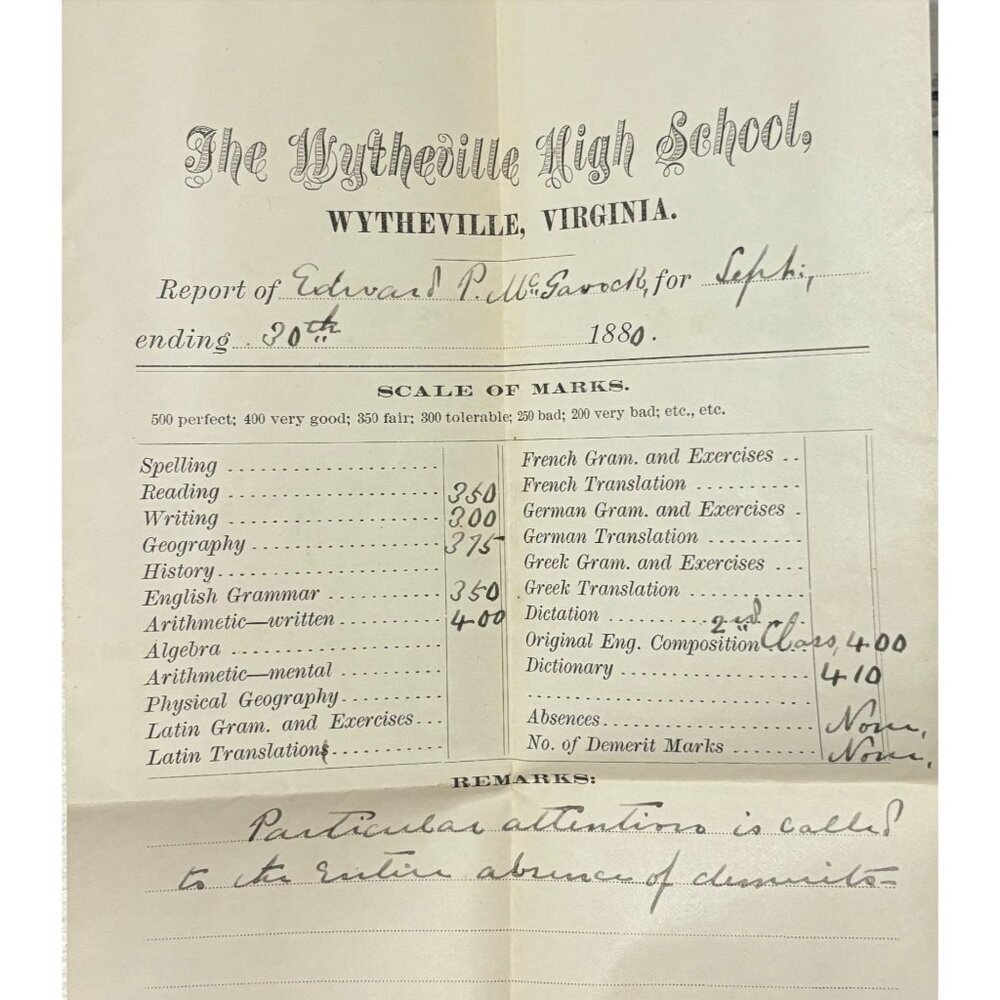 The Wytheville High School,
WYTHEVILLE, VIRGINIA.
Report of Edward P. McGavock, for Sept.,
ending 30th 1880.
SCALE OF MARKS.
500 perfect; 400 very good; 350 fair; 300 tolerable; 250 bad; 200 very bad; etc., etc.
Spelling
Reading 350
Writing 300
Geography 375
History
English Grammar 350
Arithmetic—written 400
Algebra
Arithmetic—mental
Physical Geography
Latin Gram. and Exercises
Latin Translations
French Gram. and Exercises
French Translation
German Gram. and Exercises
German Translation
Greek Gram. and Exercises
Greek Translation
Dictation
Original Eng. Composition 2nd Class, 400
Dictionary 410
Absences None.
No. of Demerit Marks None.
REMARKS:
Particular attention is called
to the entire absence of demerits-